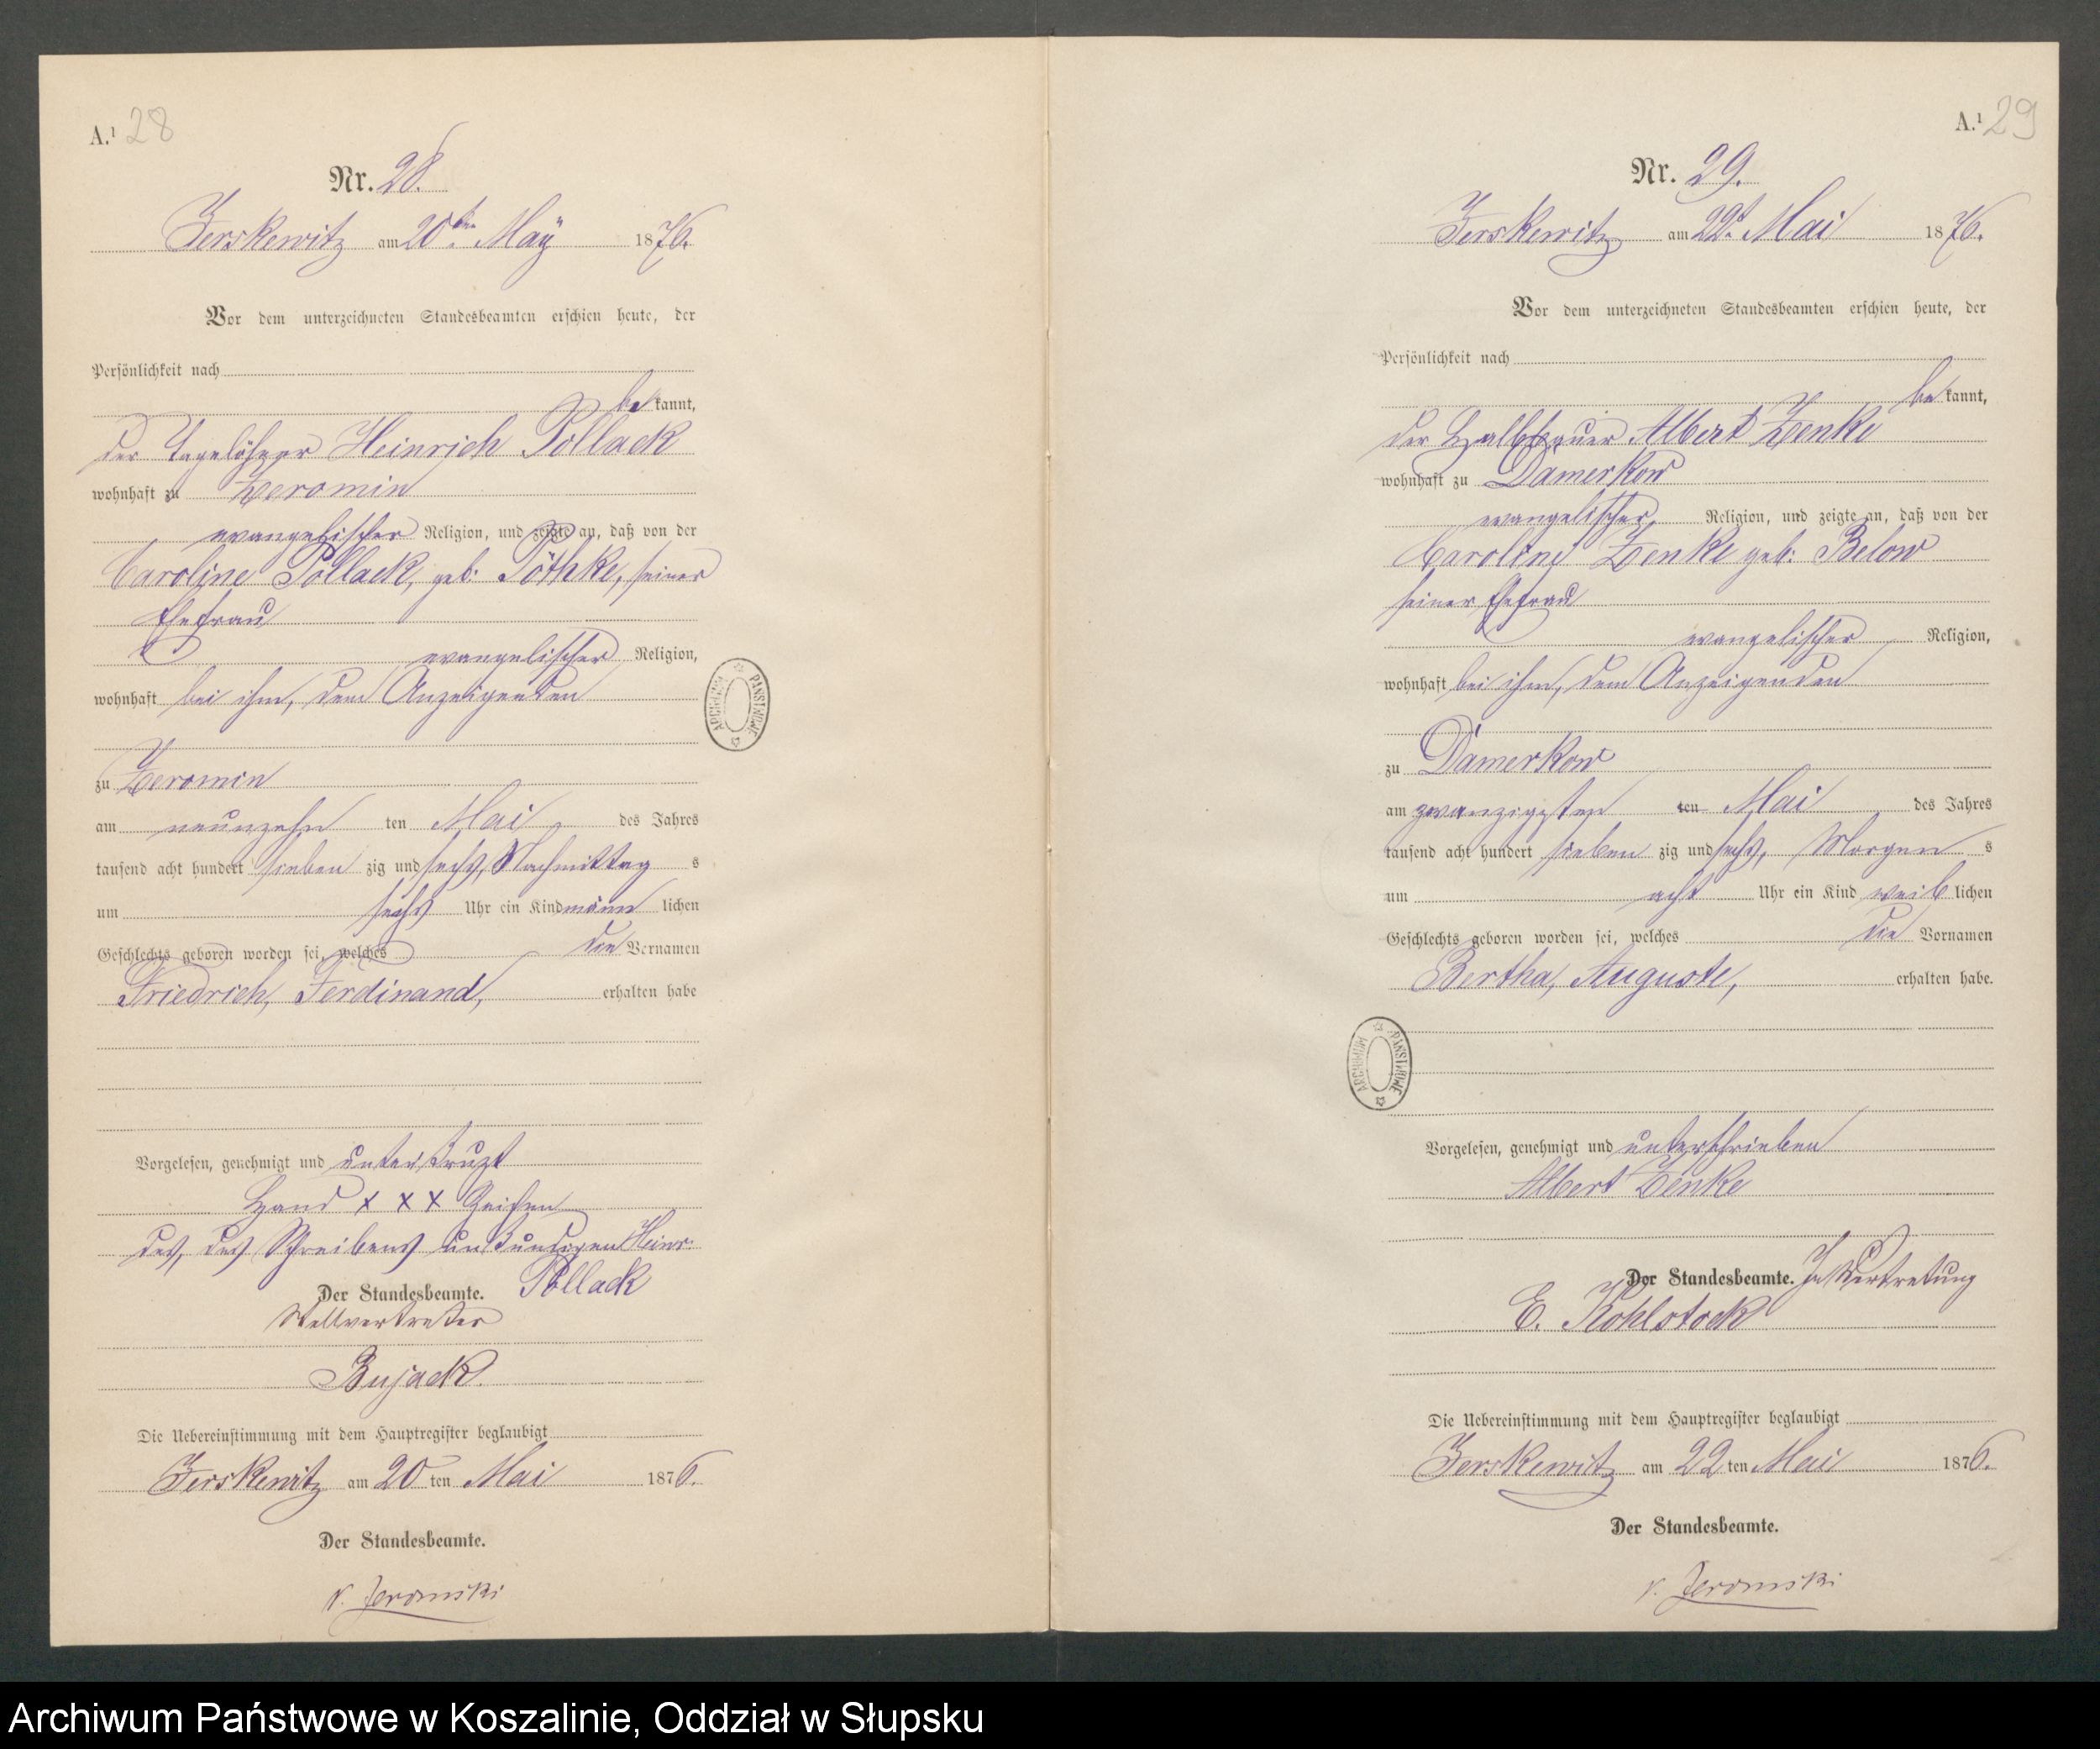 A.¹ 28
Nr. 28.
Jerskewitz am 20ten Maÿ 1876.
Vor dem unterzeichneten Standesbeamten erschien heute, der
Persönlichkeit nach
bekannt,
der Tagelöhner Heinrich Pollack
wohnhaft zu Zeromin
evangelischer Religion, und zeigte an, daß von der
Caroline Pollack, geb: Pöthke, seiner
Ehefrau
evangelischer Religion,
wohnhaft bei ihm, dem Anzeigenden
ARCHIWUM PAŃSTWOWE
zu Zeromin
am neunzehn ten Mai des Jahres
tausend acht hundert sieben zig und sechs, Nachmittag s
um sechs Uhr ein Kind männ lichen
Geschlechts geboren worden sei, welches die Vornamen
Friedrich, Ferdinand, erhalten habe
Vorgelesen, genehmigt und
Hand x x x Zeichen
des, des Schreibens unkundigen Heinr.
Pollack
Der Standesbeamte.
Stellvertreter
Bujack.
Die Uebereinstimmung mit dem Hauptregister beglaubigt
Jerskewitz am 20 ten Mai 1876.
Der Standesbeamte.
v. Jeromski
A.¹ 29
Nr. 29.
Jerskewitz am 22t. Mai 1876.
Vor dem unterzeichneten Standesbeamten erschien heute, der
Persönlichkeit nach
bekannt,
der Halbbauer Albert Zenke
wohnhaft zu Damerkow
evangelischer Religion, und zeigte an, daß von der
Caroline Zenke geb: Below
seiner Ehefrau
evangelischer Religion,
wohnhaft bei ihm, dem Anzeigenden
zu Damerkow
am zwanzigsten ten Mai des Jahres
tausend acht hundert sieben zig und sechs, Morgen s
um acht Uhr ein Kind weib lichen
Geschlechts geboren worden sei, welches die Vornamen
Bertha, Auguste, erhalten habe.
ARCHIWUM PAŃSTWOWE
Vorgelesen, genehmigt und unterschrieben
Albert Zenke
Der Standesbeamte. In Vertretung
E. Kohlstock
Die Uebereinstimmung mit dem Hauptregister beglaubigt
Jerskewitz am 22 ten Mai 1876.
Der Standesbeamte.
v. Jeromski
Archiwum Państwowe w Koszalinie, Oddział w Słupsku